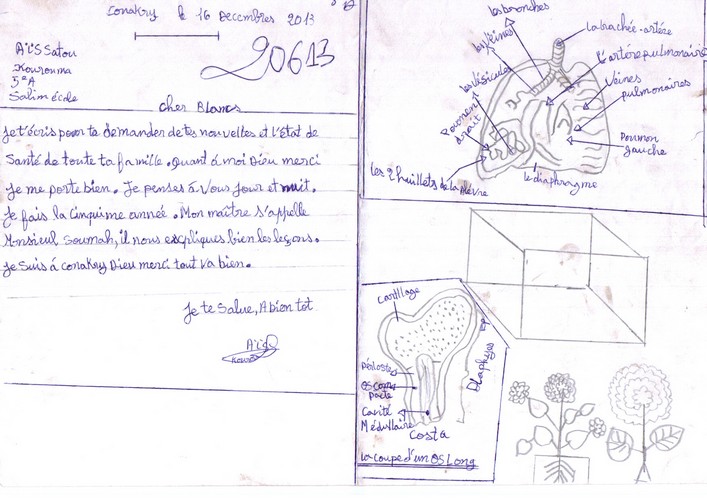 Conakry le 16 Decembres 2013
20613
Aissatou
Kourouma
5e A
Salim école
cher Blancs
Je t'écris pour te demander de tes nouvelles et l'État de
Santé de toute ta famille. Quant à moi Dieu merci
Je me porte bien. Je penses à vous Jour et nuit.
Je fais la Cinquime année. Mon maître s'appelle
Monsieul Soumah, il nous expliques bien les leçons.
Je Suis à conakry Dieu merci tout va bien.
Je te Salue, A bien tot
les bronches
les Veines
les Vésicules
Poumont
droit
les 2 huillets de la Plèvre
la trachée-artère
l'artère pulmonaire
Veines
pulmonaires
Poumon
gauche
le diaphragme
Cartilage
Périoste
OS com
Pacte
Cavité
Médullaire
Diaphyses
Costa
la coupe d'un OS Long